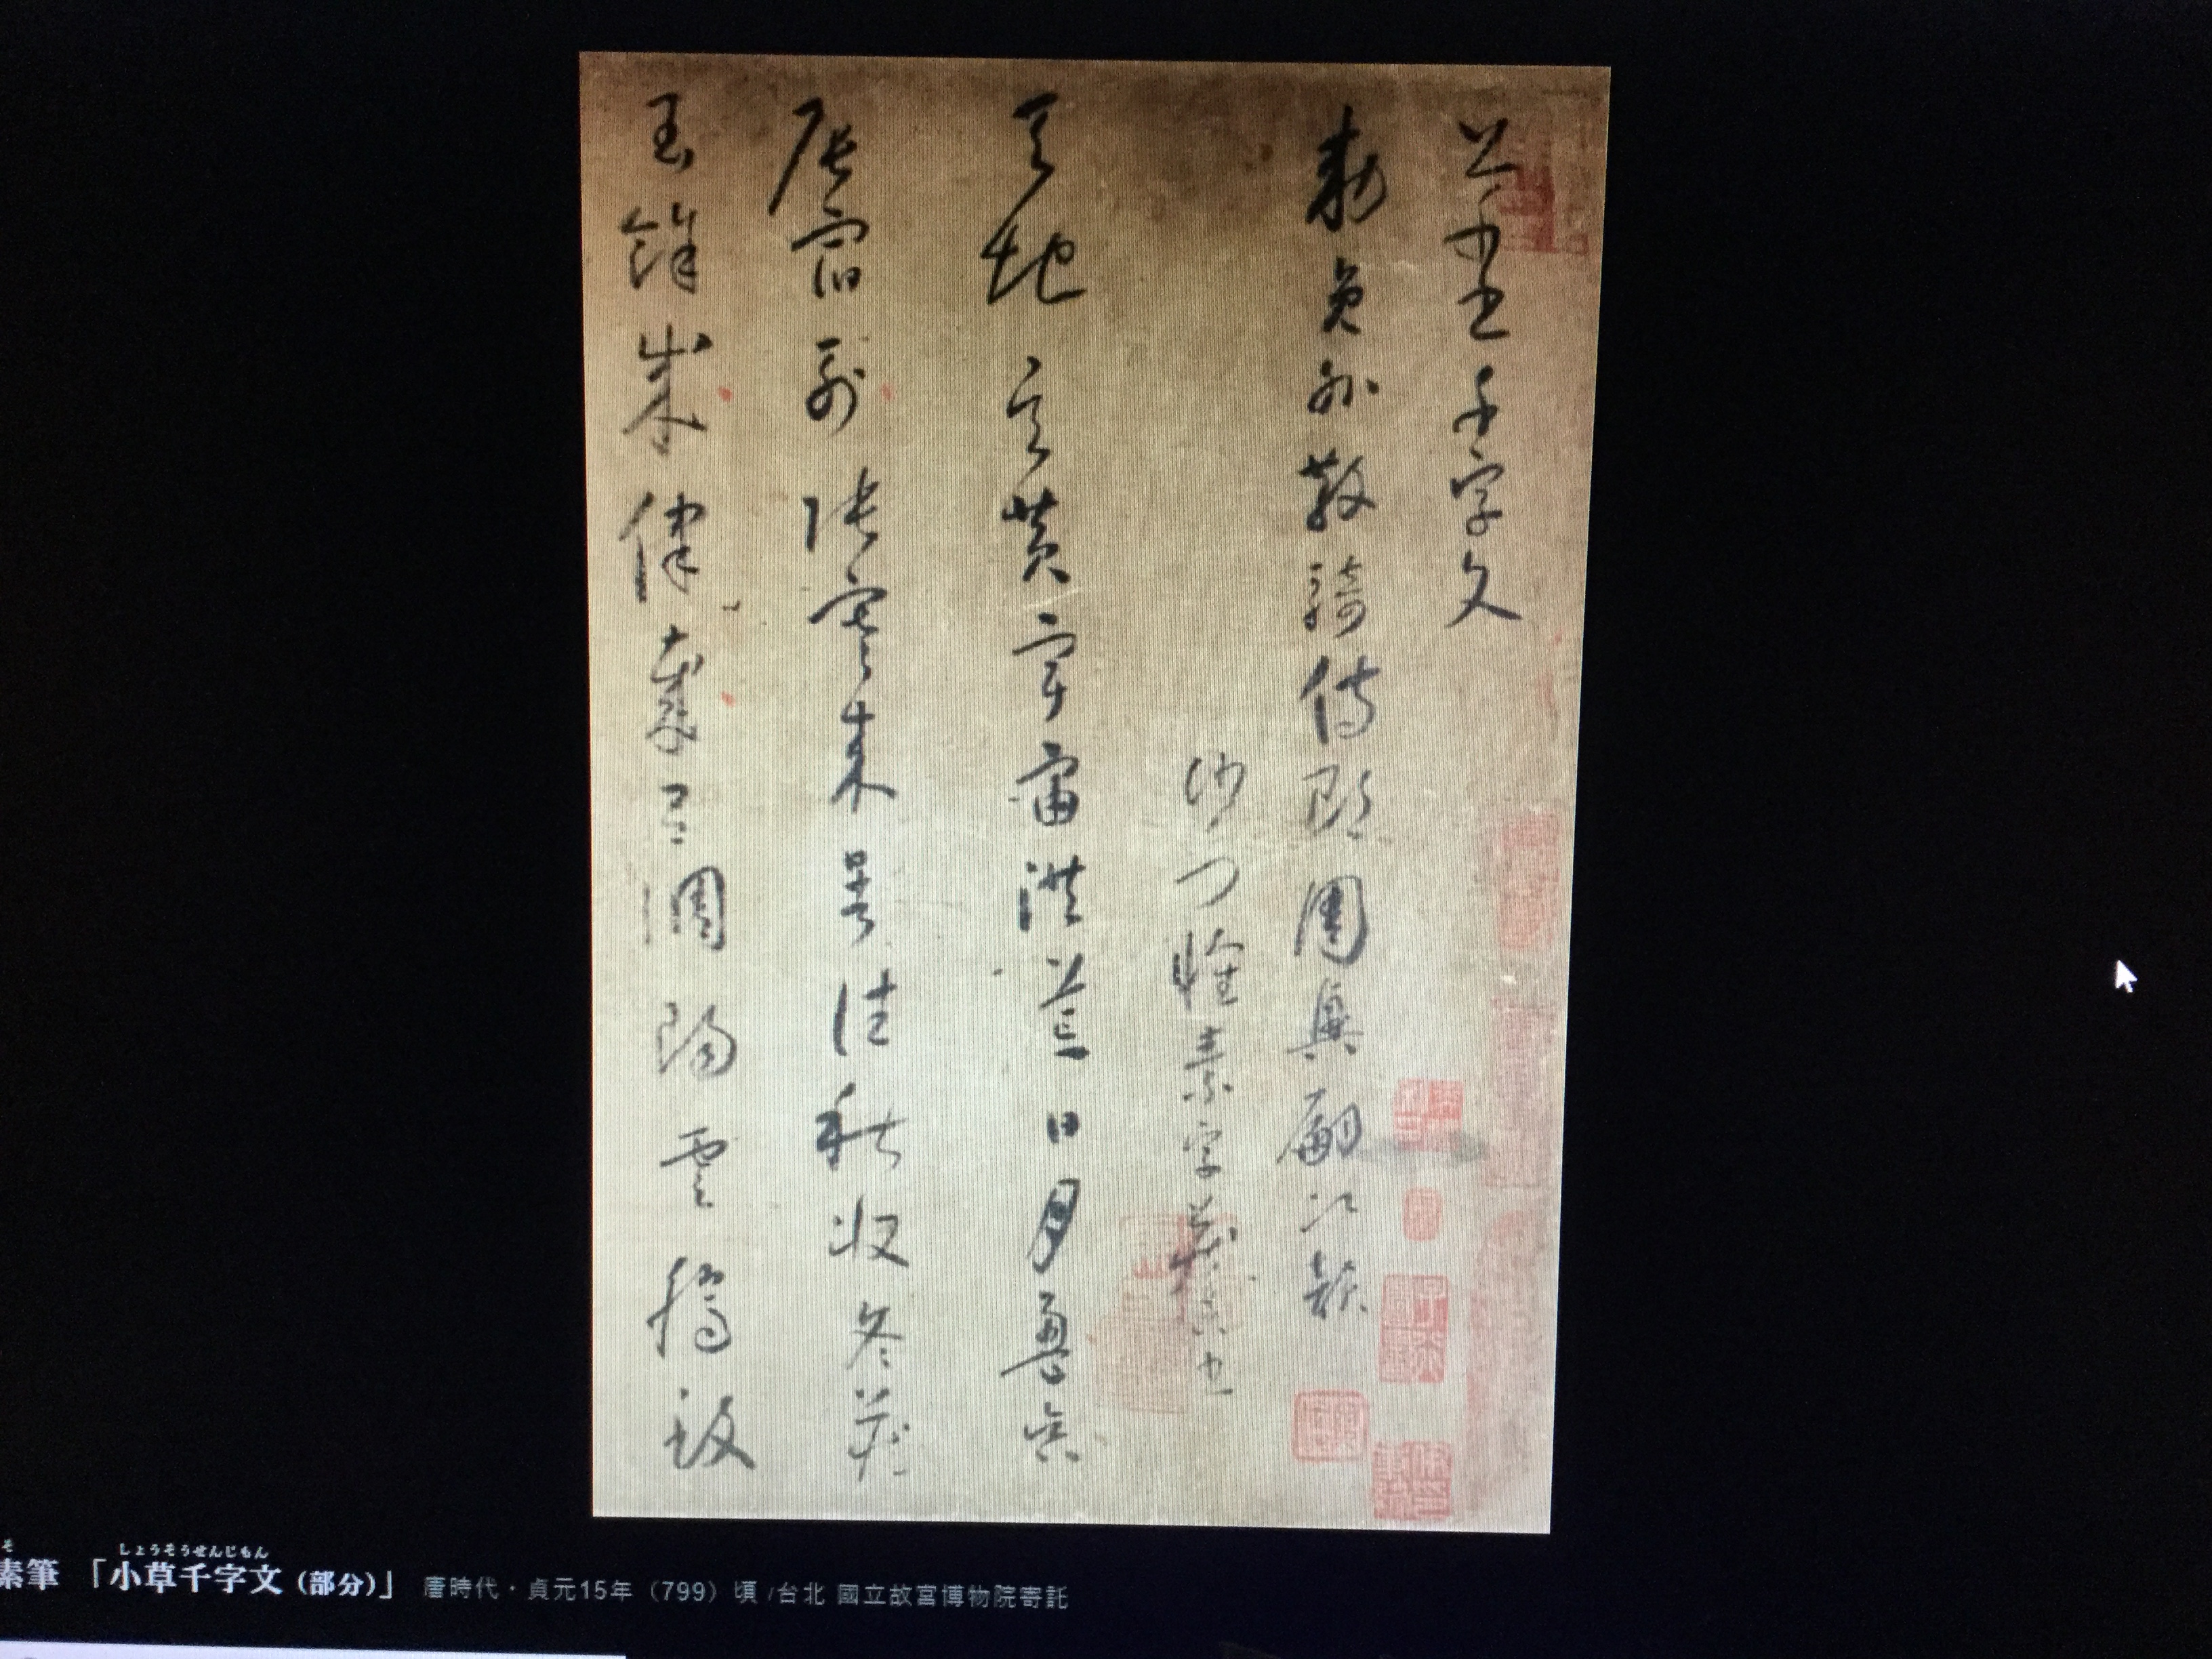 草書千字文
敕員外散騎侍郎周興嗣次韻
沙門懷素字藏真書
天地玄黃宇宙洪荒日月盈昃
辰宿列張寒來暑往秋收冬藏
閏餘成律歲呂調陽雲騰致
そ しょうそうせんじもん
素筆 「小草千字文（部分）」 唐時代・貞元15年（799）頃 /台北 國立故宮博物院寄託